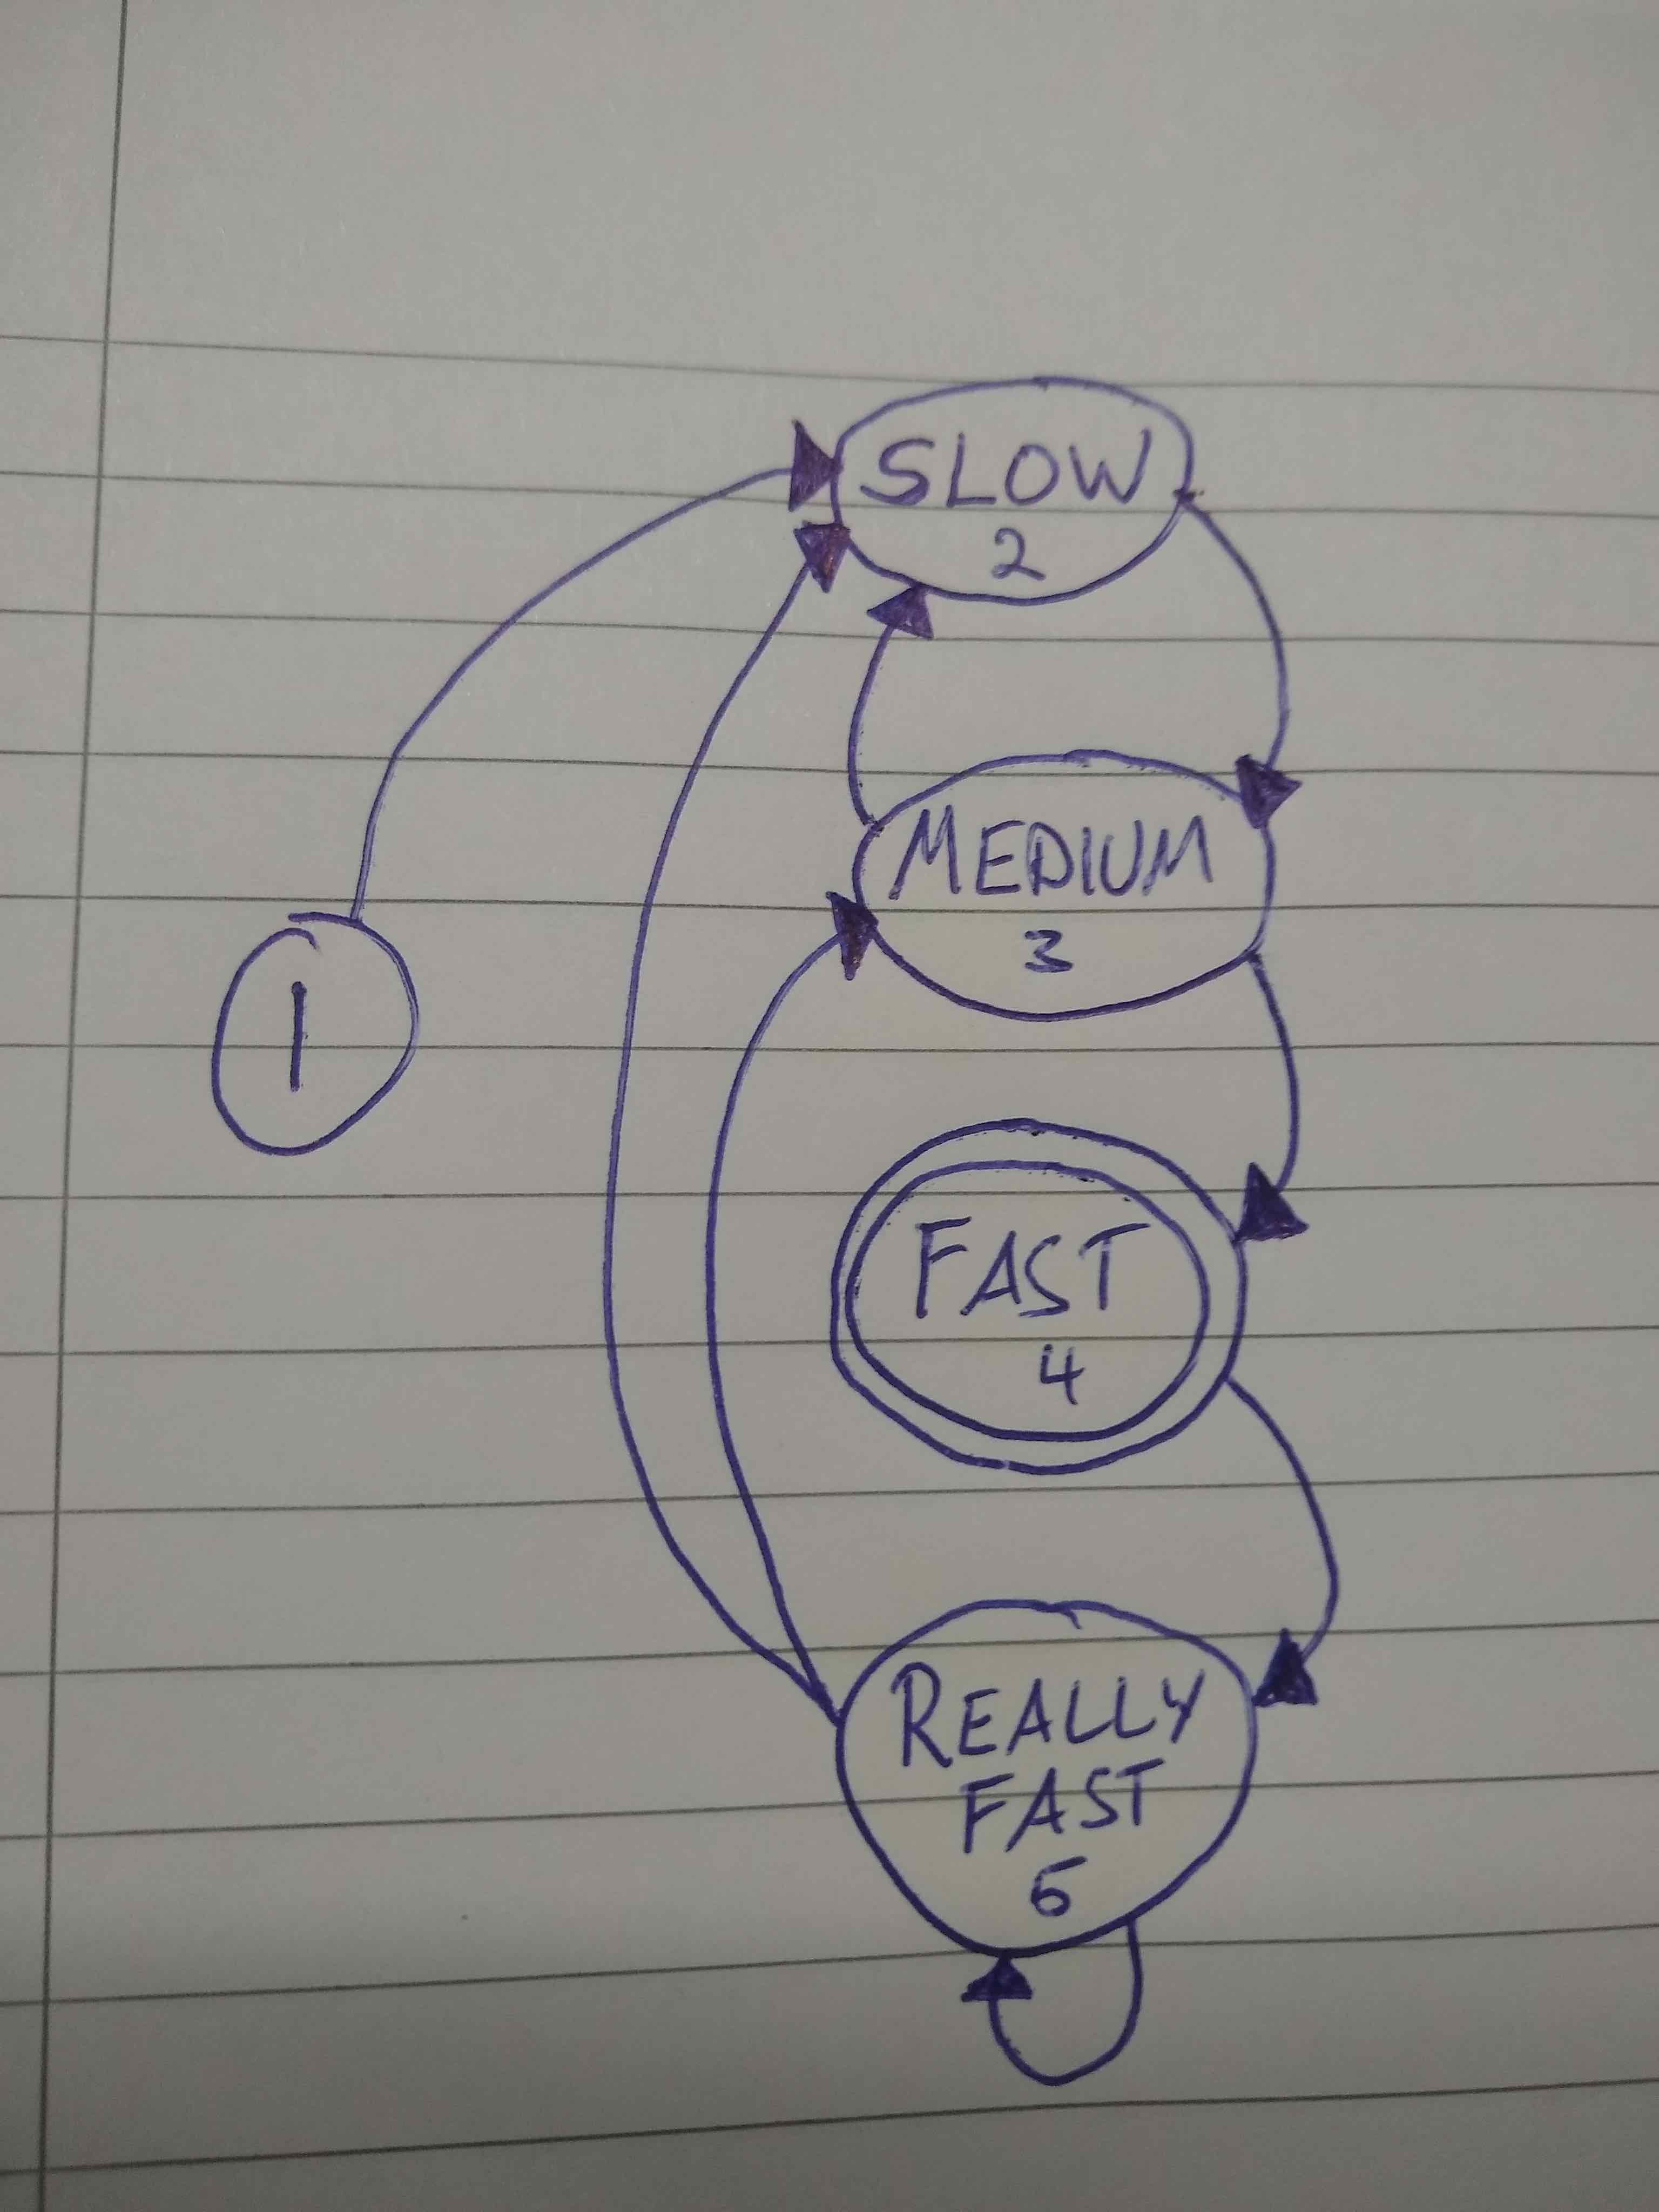 SLOW
2
MEDIUM
3
1
FAST
4
REALLY
FAST
5